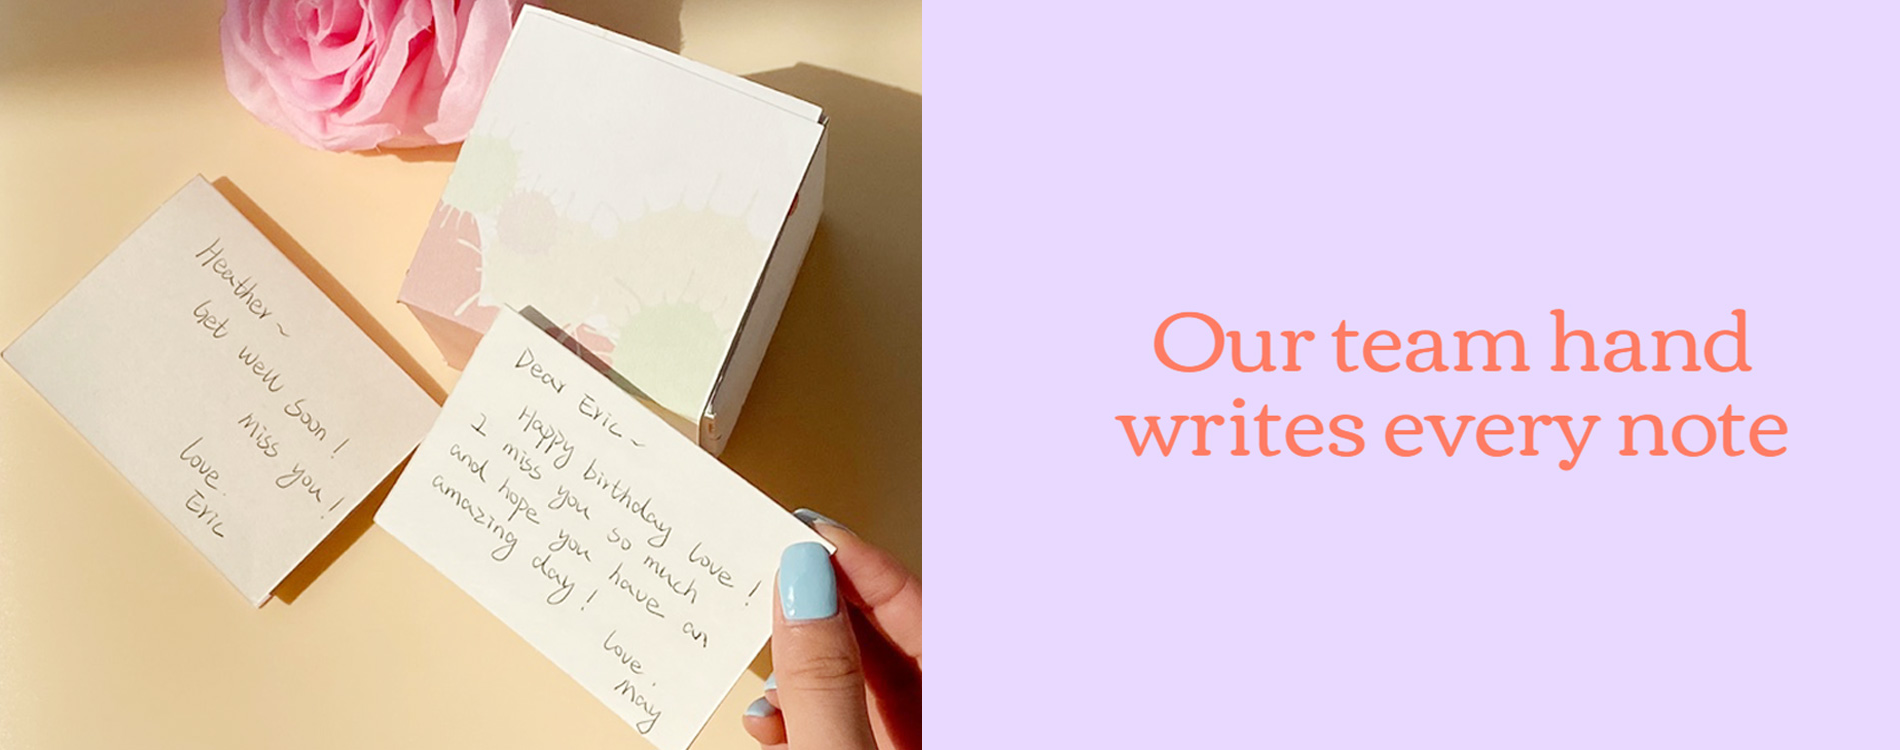 Heather ~
Get well soon!
miss you!
love.
Eric
Dear Eric ~
Happy birthday love!
I miss you so much
and hope you have an
amazing day!
love.
May
Our team hand
writes every note